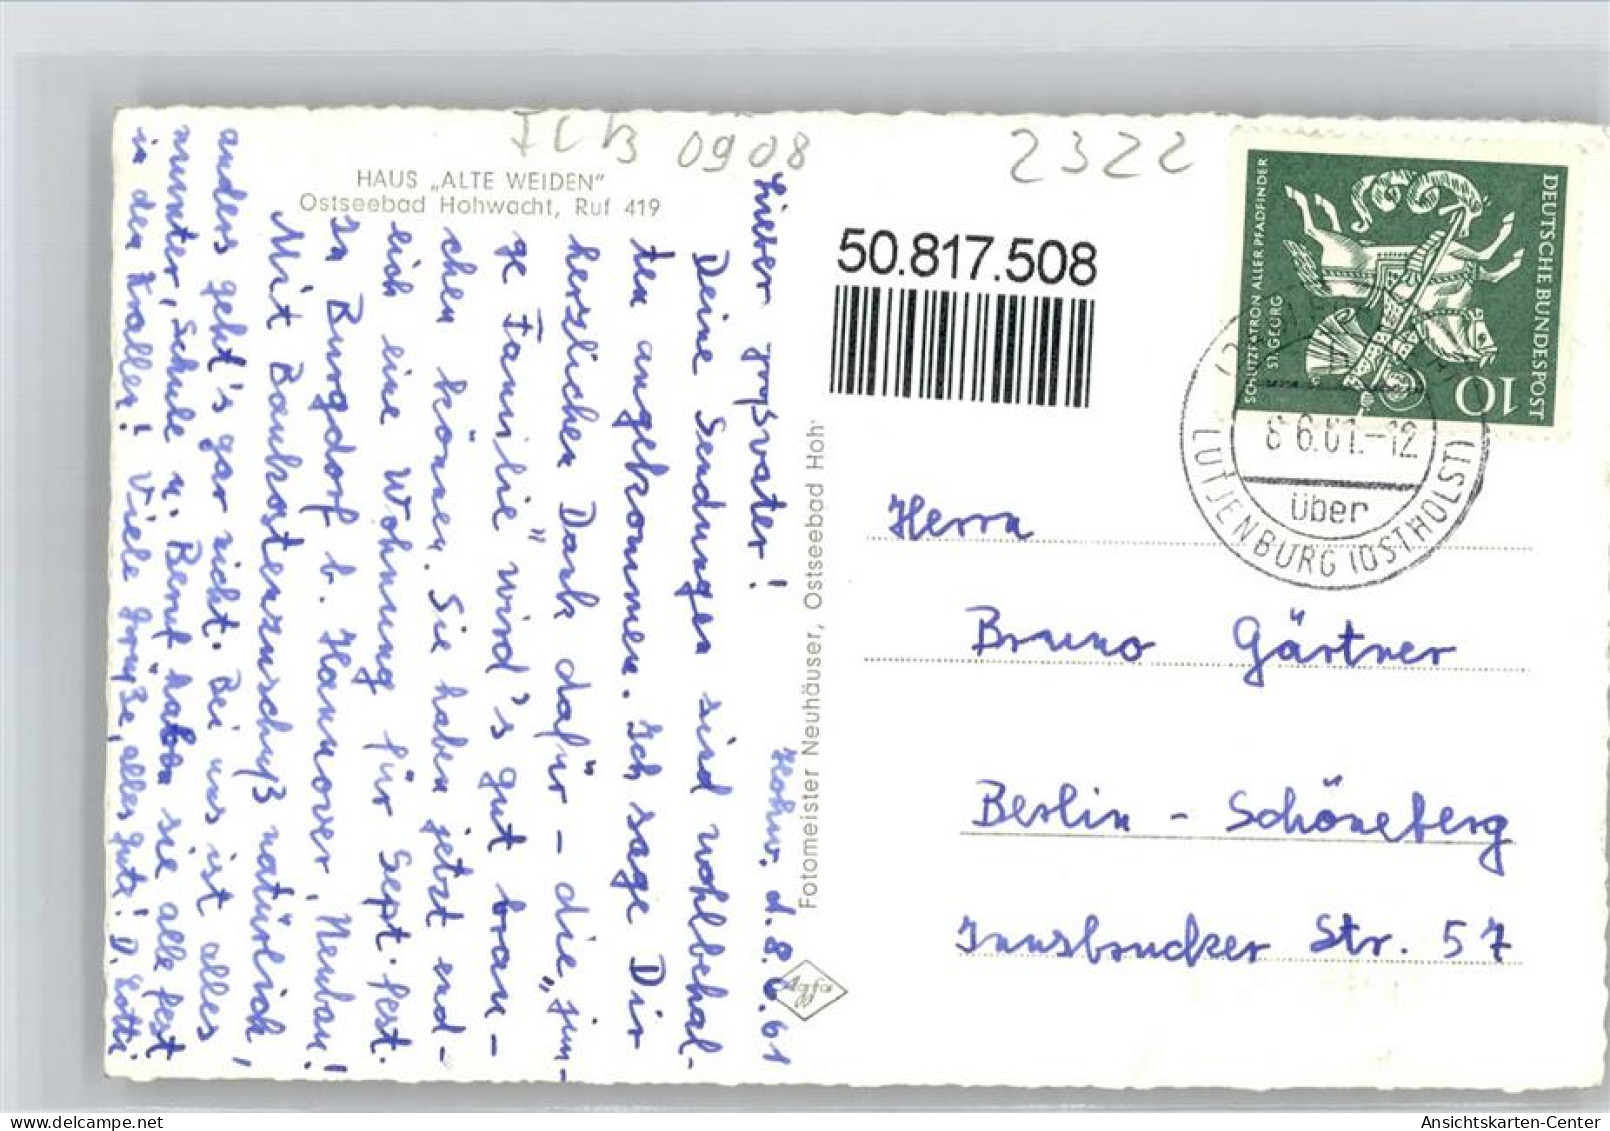 ICB 0908
2322
HAUS „ALTE WEIDEN"
Ostseebad Hohwacht, Ruf 419
Hohw. d. 8.6.61
Lieber Großvater!
Deine Sendungen sind wohlbehal-
ten angekommen. Ich sage Dir
herzlichen Dank dafür – die „jun-
ge Familie" wird's gut brau-
chen können. Sie haben jetzt end-
lich eine Wohnung für Sept. fest.
In Burgdorf b. Hannover, Neubau!
Mit Baukostenzuschuß natürlich,
anders geht's gar nicht. Bei uns ist alles
munter, Schule u. Beruf haben sie alle fest
in den Krallen! Viele Grüße, alles Gute! D. Lotti
Fotomeister Neuhäuser, Ostseebad Hoh
Agfa
50.817.508
DEUTSCHE BUNDESPOST
10
SCHUTZPATRON ALLER PFADFINDER
ST. GEORG
8.6.61.-12
über
LÜTJENBURG (OSTHOLST)
Herrn
Bruno Gärtner
Berlin - Schöneberg
Innsbrucker Str. 57
Ansichtskarten-Center